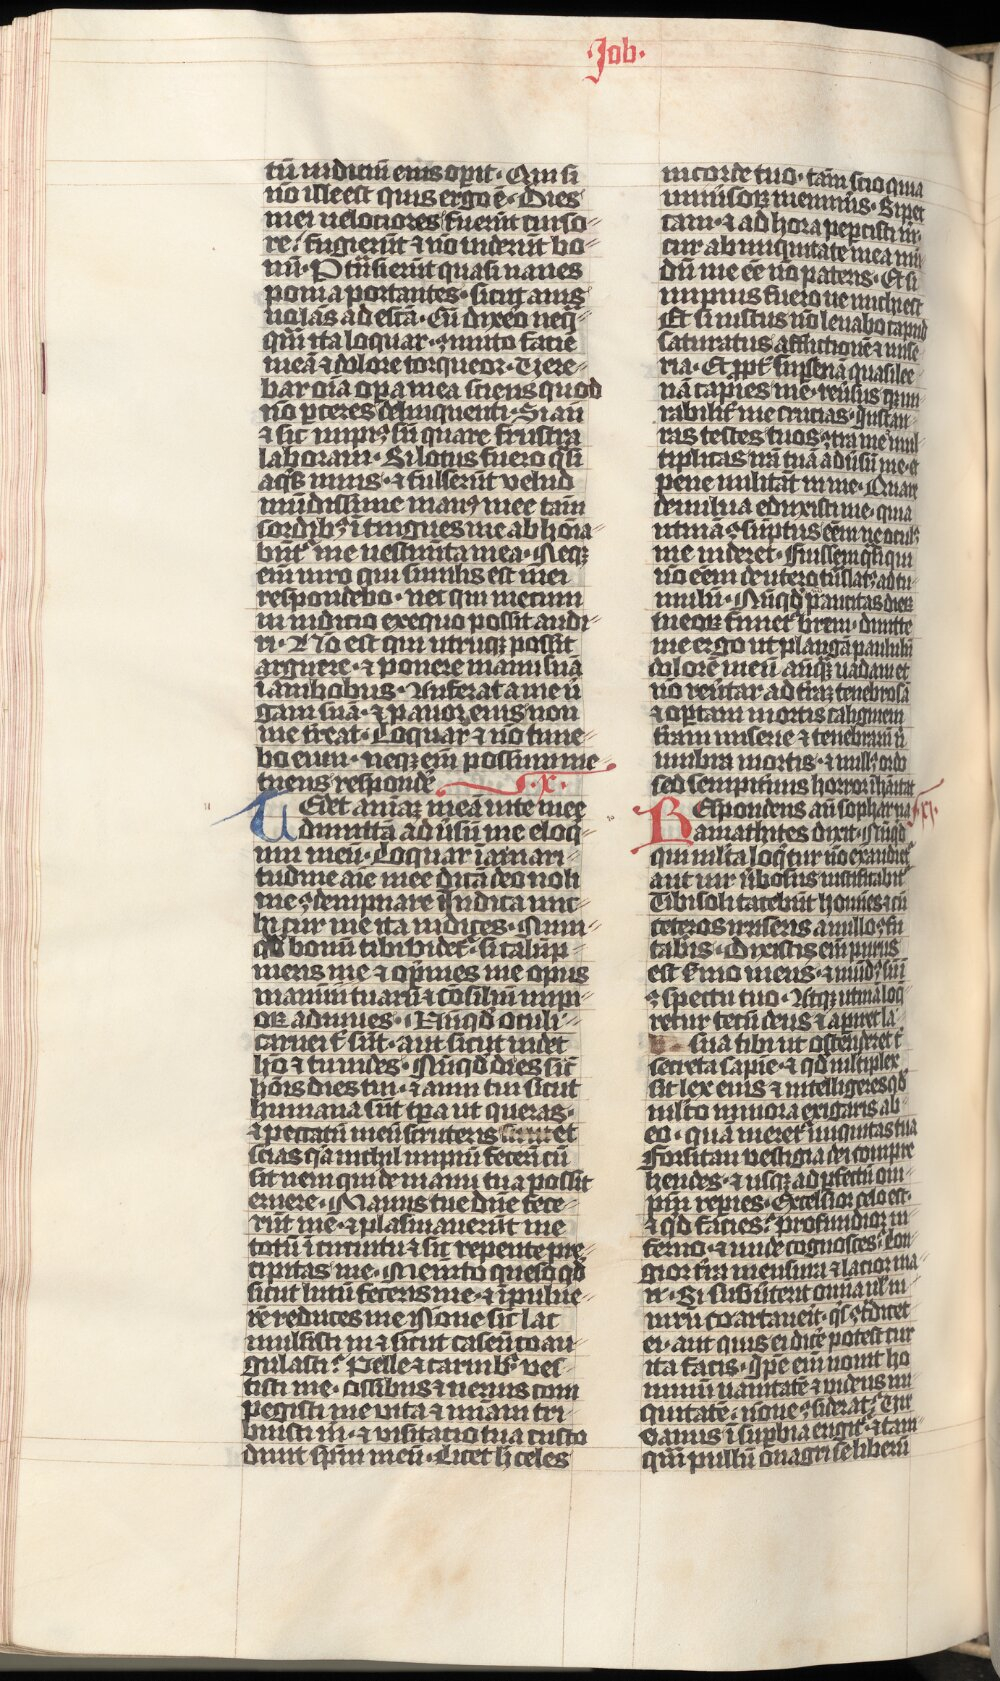 ·Job·
tū iudiciū eius op̄it · Qui si
nō ille est quis ergo ē · Dies
mei uelociores fuerūt curso⸗
re · fugierūt ⁊ nō uiderūt bo⸗
nū · P̄tn̄sierūt quasi naues
poma portantes · sicut auis
uolās ad escā · Cū dixero neq̄⸗
q̄m̄ ita loquar · ꝯmuto faciē
meā ⁊ dolore torqueor · Uere⸗
bar oīa oꝑa mea sciens quod
nō ꝑceres delinquenti · Si aū
⁊ sic impiꝰ sū quare frustra
laboraui · Si lotus fuero q̄si
aq̄s niuis · ⁊ fulserīt velud
mūdissime manꝰ mee tam̄
sordibꝰ ītingues me ab hoīa⸗
būt' me uestimīta mea · Neqꝫ
eī uiro qui similis est mei
respondebo · nec qui mecum
in iudicio ex equo possit audi⸗
ri · Nō est qui utrūqꝫ possit
arguere · ⁊ ponere manū suā
ī ambobus · Auferat a me ū⸗
gam suā · ⁊ pauor eius non
me t̄reat · Loquar ⁊ nō time⸗
bo eum · neqꝫ eī possum me⸗
tuens respondē · x ·
Tedet aniaꝫ meā uite mee
dimittā ad ūsū me eloq̄⸗
ium meū · Loquar ī amari⸗
tudine aīe mee dicā deo noli
me ꝯdempnare Indica mi⸗
hi cur me ita iudices · Num⸗
qd bonū tibi uidet' · si calūp⸗
nieris me ⁊ op̄mies me opus
manuū tuarū ⁊ cōsiliū impi⸗
oꝝ adiuues · Nūqd oculi⸗
carnei t̄ sūt · aut sicut uidet
hō ⁊ tu uides · Nūqd dies sic̄
hoīs dies tui · ⁊ anni tui sicut
humana sūt tꝑa ut queras ·
⁊ peccatū meū scruteris et
scias q̄a nichil impiū fecerī cū
sit nem̄ qui de manu tua possit
eruere · Manus tue dn̄e fece⸗
rūt me · ⁊ plasmauerūt me
totū ī circuitu ⁊ sic repente pre⸗
cipitas me · Memto queso qd
sicut lutū feceris me · ⁊ ī pulue⸗
rē reduces me Nōne sic̄ lac
mulsisti m̄ ⁊ sicut caseū coau⸗
gulasti? Pelle ⁊ carnibꝰ ves⸗
tisti me · ossibus ⁊ neruis com
pegisti me vita ⁊ mīam tri⸗
buisti m̄ · ⁊ visitatio tua custo
diuit spm̄ meū · Licet h̄ celes
in corde tuo · tam̄ scio quia
uniuisoꝝ memineris · Si pec̄
caui · ⁊ ad hora pepcisti m̄
cur ab iniquitate mea mū
dū me eē nō pateris · Et si
impius fuero ue michi est
Et si iustus nō leuabo caput
saturatus afflictionē ⁊ mise⸗
ria · Et ꝓpt' suꝑbiā quasi lee⸗
nā capies me · reūsus qꝫ mi⸗
rabilit' me crucias · Instau⸗
ras testes tuos ꝯtra me mul⸗
tiplicas irā tuā aduūsū me · ⁊
pene militāt in me · Quare
de uulua eduxisti me · quia
utinā ꝯsūptus eēm ne oculꝰ
me uideret · Fuissem q̄si qui
nō eēm de utero tūslatꝰ ad tu⸗
mulū · Nūqd paucitas dieꝝ
meoꝝ finiet' breui · dimitte
me ergo ut plangā paululū
dolorē meū anq̄ꝫ uadam et
nō reūtar ad tr̄aꝫ tenebrosā
⁊ oꝑtam mortis caligine
tr̄am miserie ⁊ tenebraꝝ ū
umbra mortis · ⁊ nullꝰ ordo
sed sempitn̄us horror īhītat
Respondens aū sophar na · xi ·
amathites dixit · Nūqd
qui mlta loq̄tur nō ⁊ exaudiet'
aut uir ūbosus iustificabit'
Tibi soli tacebūt homīes ⁊ cū
ceteros irriseris a nullo ꝯfu
tabis · Dixistis eī purus
est s̄mo meus · ⁊ mūdꝰ sū ī
ꝯspectu tuo · Atqꝫ utinā loq̄
retur tecū deus ⁊ apiret la⸗
sua tibi ut ostenderet t'
secreta sapīe · ⁊ qd mltiplex
sit lex eius ⁊ intelligeres qd
mlto minora exigaris ab
eo · quā meret' iniquitas tua
Forsitan vestigia dei compre
hendes · ⁊ usqꝫ ad ꝑfectū om⸗
pm̄ reꝑies · Excelsior celo est ·
⁊ qd facies? profundior in
ferno · ⁊ unde cognosces? lon⸗
gior t̄ra mensura ⁊ lacior ma⸗
ri · Si subūterit omīa uł in
unū coartaueīt · q̄s ꝯdicet
ei · aut quis ei dicē potest cur
ita facis · Ipe eī nouit ho
minū uanitatē ⁊ videns ini
quitatē · nōne ꝯsiderat? Uir
vanus ī suꝑbia erigit' · ⁊ tam
q̄m pullū onagri se liberū